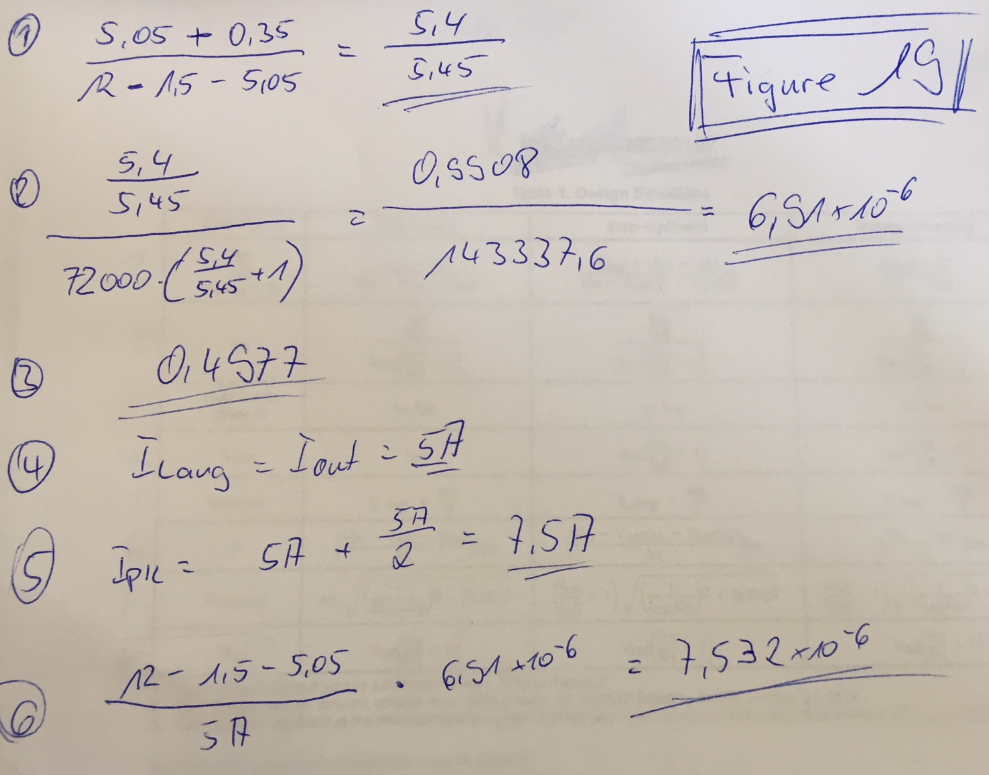 ① (5,05 + 0,35) / (12 - 1,5 - 5,05) = 5,4 / 5,45
Figure 19
② (5,4 / 5,45) / (72000 · (5,4 / 5,45 + 1)) = 0,9908 / 143337,6 = 6,91 × 10⁻⁶
③ 0,4977
④ ILavg = Iout = 5A
⑤ Ipk = 5A + 5A / 2 = 7,5A
⑥ (12 - 1,5 - 5,05) / 5A · 6,91 × 10⁻⁶ = 7,532 × 10⁻⁶